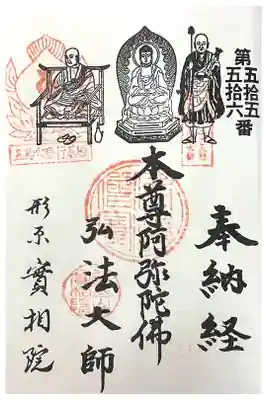 第五拾五
五拾六番
奉納経
本尊阿弥陀佛
弘法大師
形原實相院